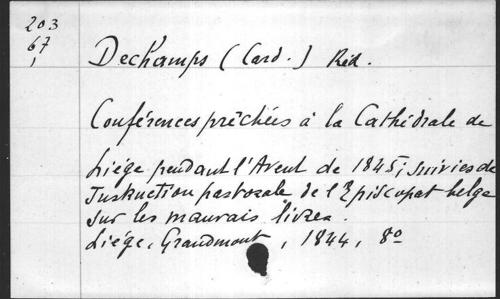 203
67
1
Dechamps (Card.) Réd.
Conférences prêchées à la Cathédrale de
Liége pendant l'Avent de 1845, suivies de
Instruction pastorale de l'Episcopat belge
sur les mauvais livres.
Liége, Grandmont, 1844, 8º